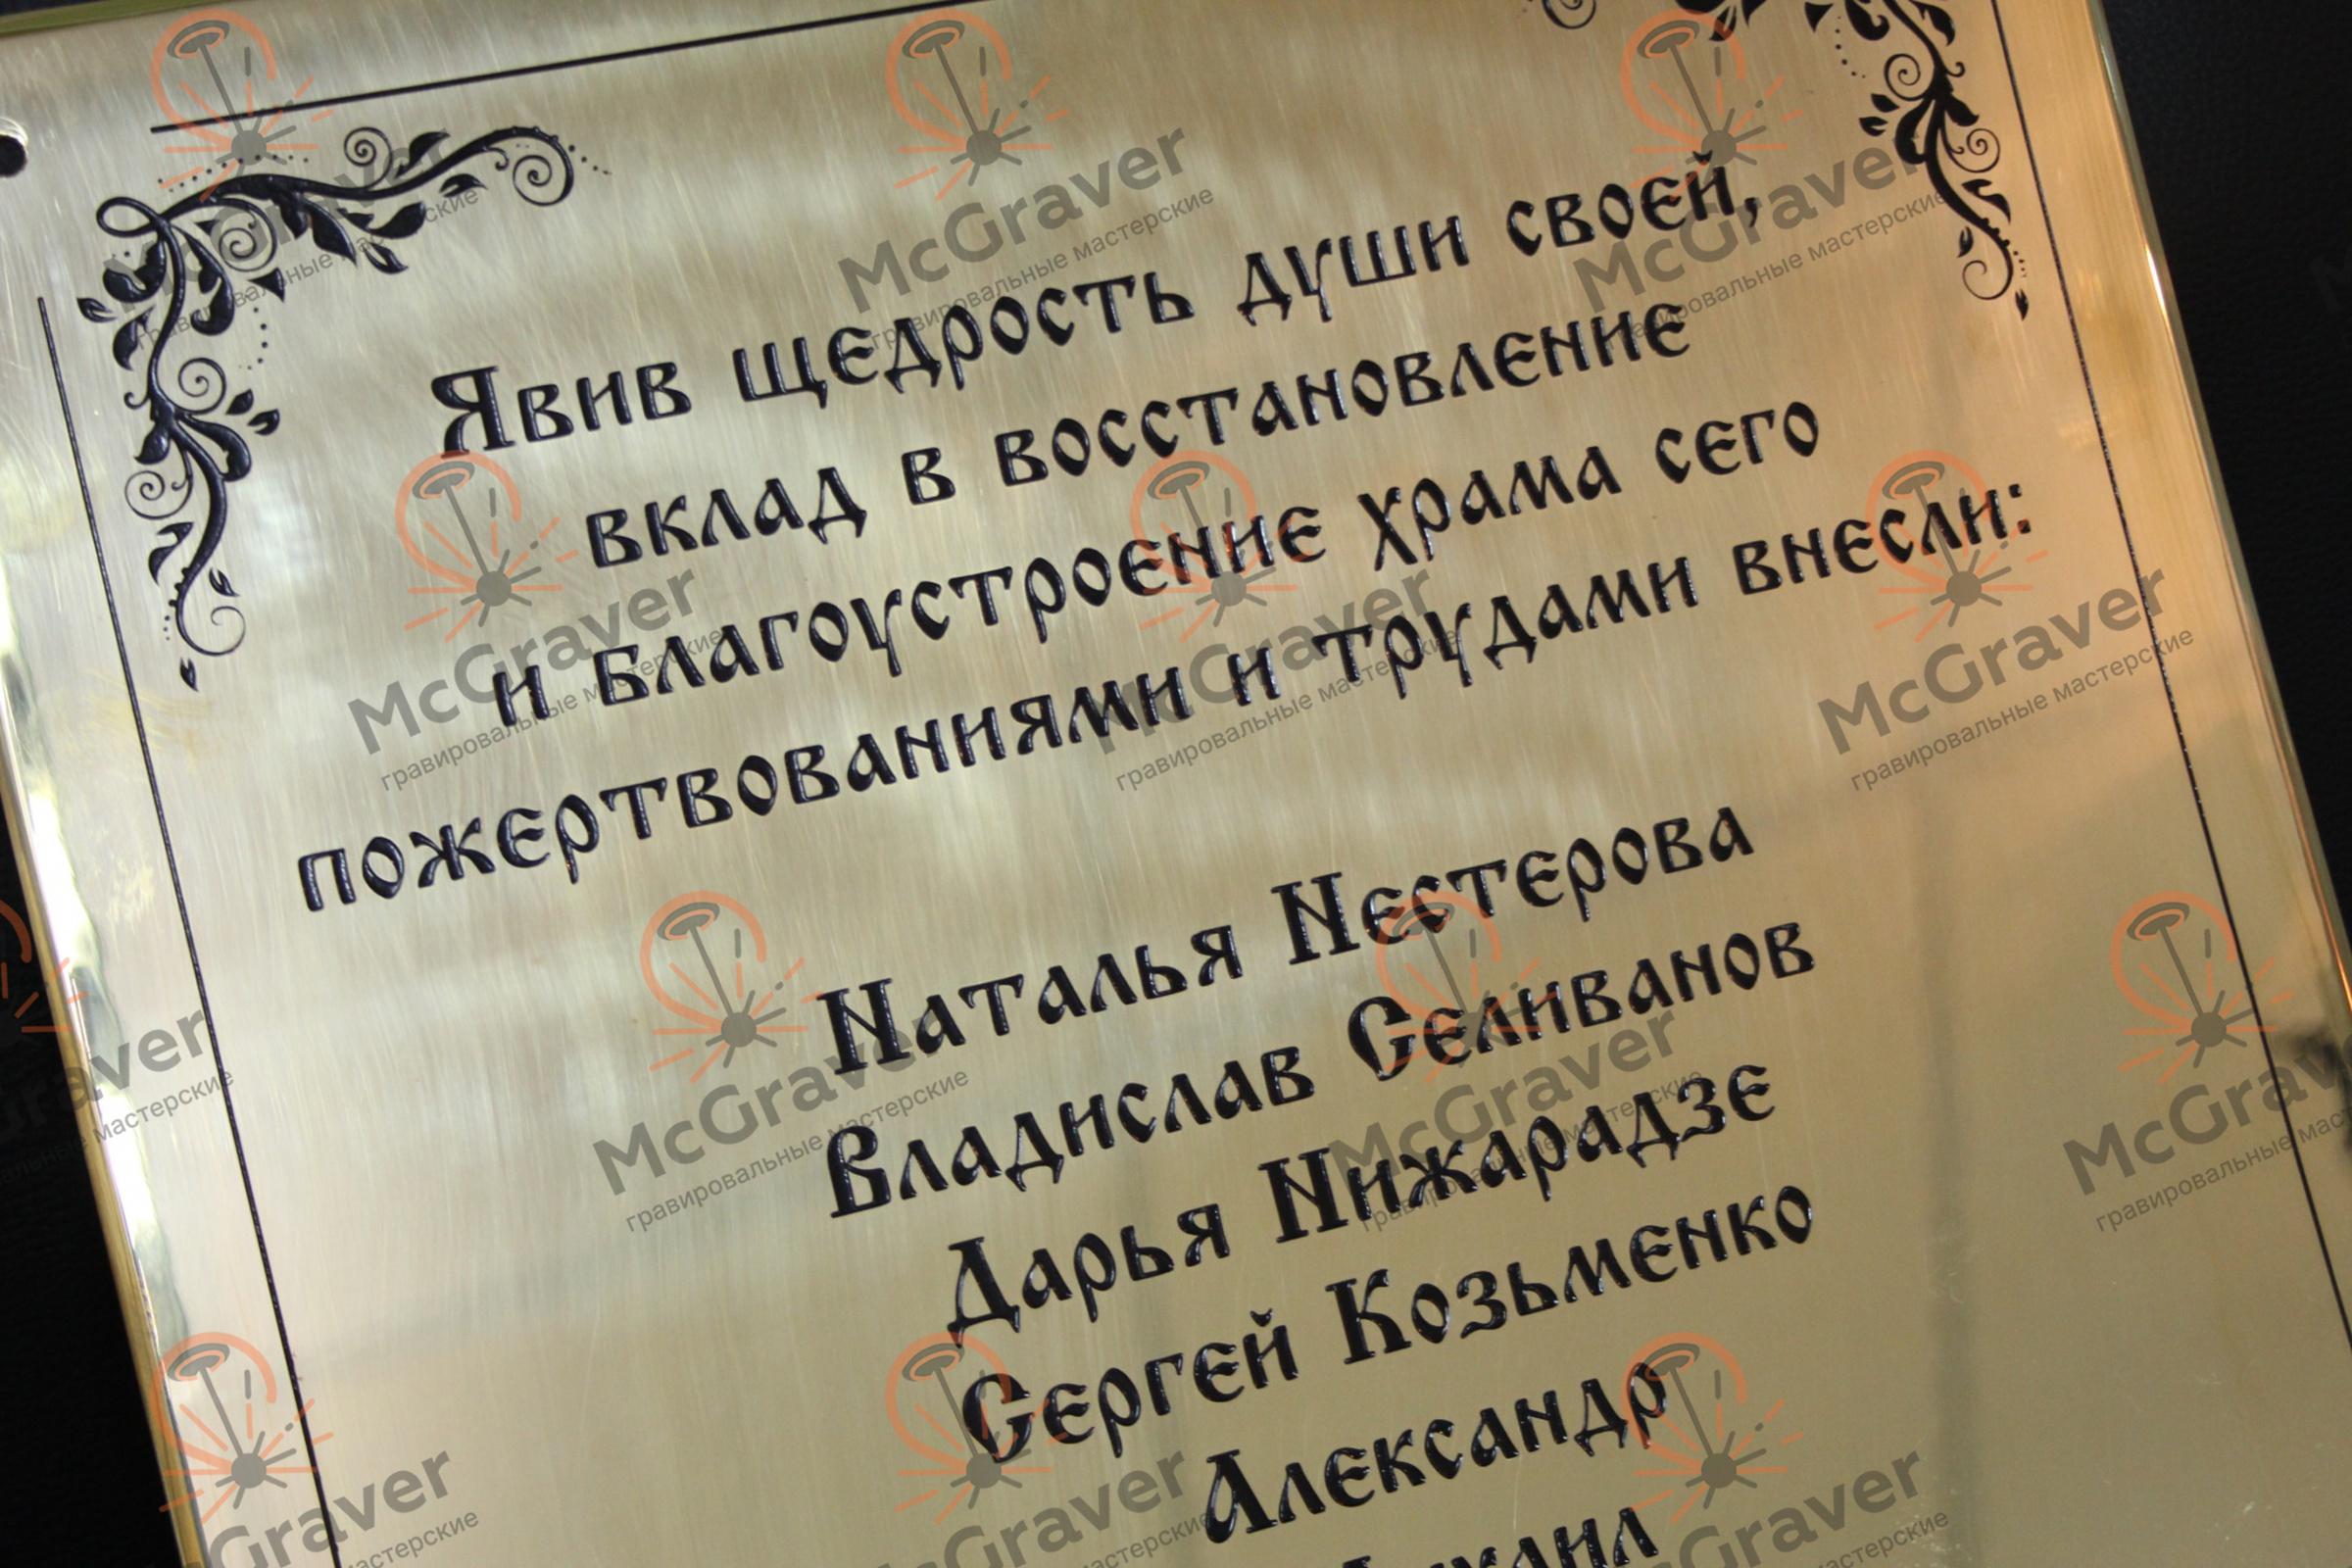 Явив щедрость души своей,
вклад в восстановление
и благоустроение храма сего
пожертвованиями и трудами внесли:
Наталья Нестерова
Владислав Селиванов
Дарья Нижарадзе
Сергей Козьменко
Александр
McGraver
гравировальные мастерские